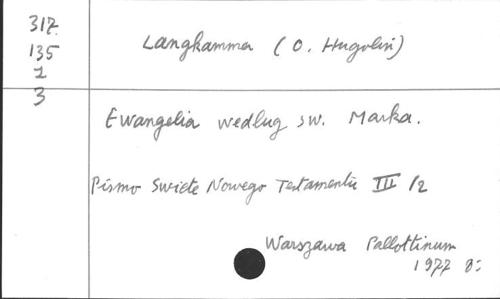 317.
135
1
3
Langkammer (O. Hugolin)
Ewangelia według sw. Marka.
Pismo Swiete Nowego Testamentu III/2
Warszawa Pallottinum
1977 8: